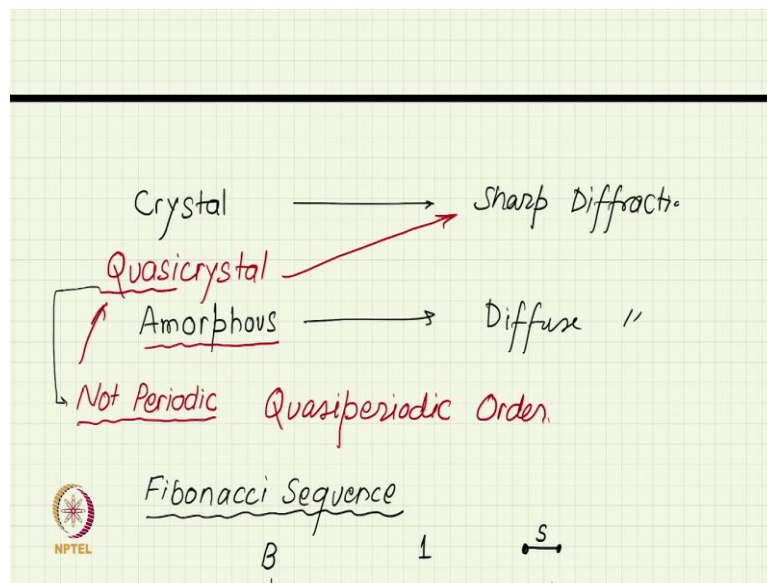 Crystal → Sharp Diffracti.
Quasicrystal
Amorphous → Diffuse "
Not Periodic Quasiperiodic Order.
Fibonacci Sequence
NPTEL
B 1 S